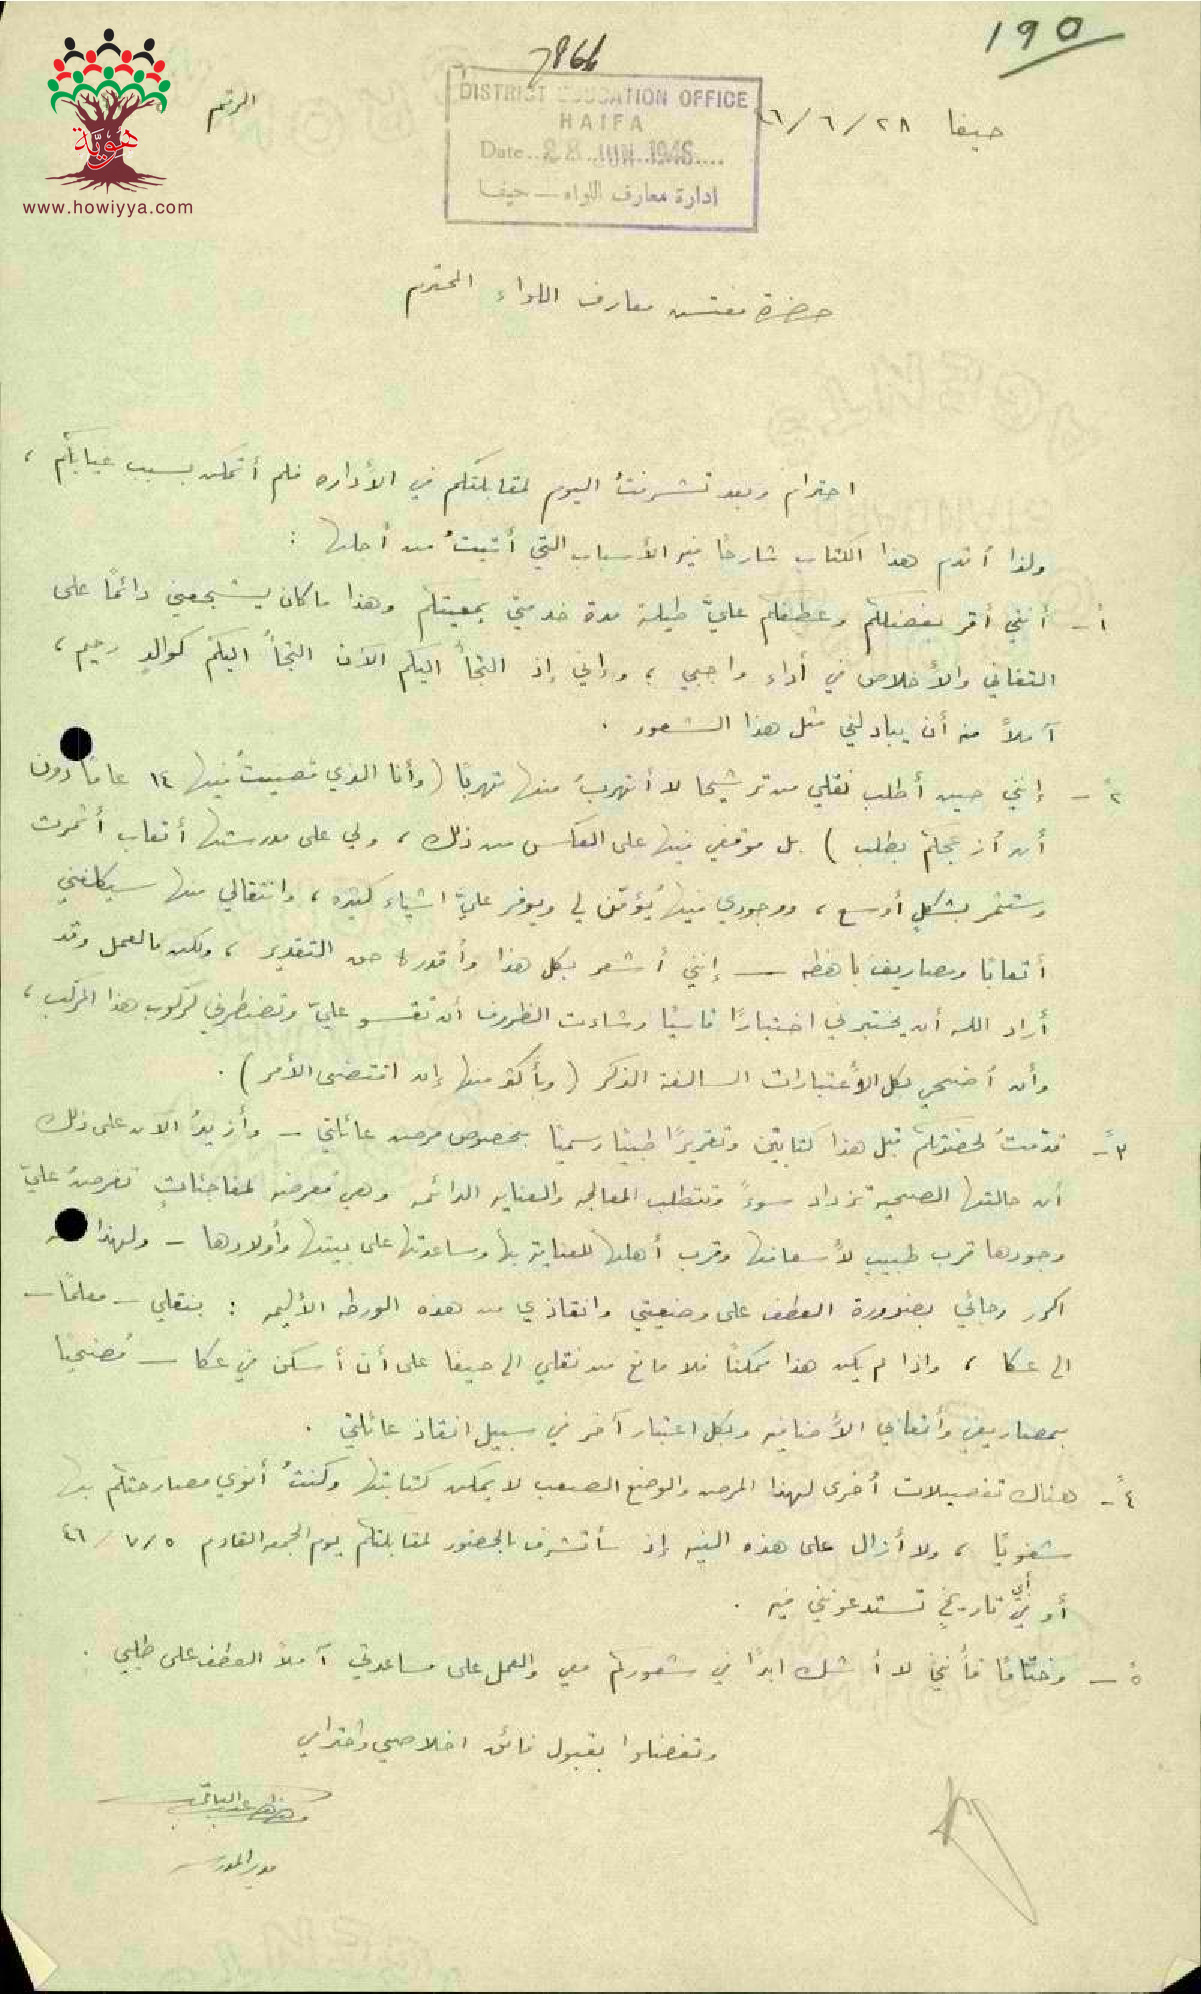 ١٩٥
7966
هَوِيَّة
www.howiyya.com
الرقم
DISTRICT EDUCATION OFFICE
HAIFA
Date 28 JUN 1946
ادارة معارف اللواء — حيفا
حيفا ٢٨/٦/
حضرة مفتش معارف اللواء المحترم
احترام وبعد تشرفتُ اليوم لمقابلتكم في الأداره فلم أتمكن بسبب غيابكم ،
ولذا أقدم هذا الكتاب شارحًا فيه الأسباب التي أتيتُ من أجلها :
أً- أنني أقر بفضلكم وعطفكم عليّ طيلة مدة خدمتي بمعيتكم وهذا ما كان يشجعني دائمًا على
التفاني والأخلاص في أداء واجبي ، وإني إذ التجأ اليكم الآن التجأ اليكم كوالدٍ رحيم ،
آملاً منه أن يبادلني مثل هذا الشعور .
٢ً- إنني حين أطلب نقلي من ترشيحا لا أتهربُ منها تهربًا (وأنا الذي قضيتُ فيها ١٤ عامًا دون
أن أزعجكم بطلب) بل موقفي فيها على العكس من ذلك ، ولي على مدرستها أتعاب أثمرت
وستثمر بشكلٍ أوسع ، ووجودي فيها يُؤمّن لي ويوفر عليّ اشياء كثيره ، وانتقالي منها سيكلفني
أتعابًا ومصاريف باهظه — إنني أشعر بكل هذا وأقدره حق التقدير ، ولكن ما العمل وقد
أراد الله أن يختبرني اختبارًا قاسيًا وشاءت الظروف أن تقسو عليّ وتضطرني لركوب هذا المركب ،
وأن أضحي بكل الأعتبارات السالفة الذكر (وبأكثر منها إن اقتضى الأمر) .
٣ً- قدّمتُ لحضرتكم قبل هذا كتابين وتقريرًا طبيًا رسميًا بخصوص مرض عائلتي — وأزيدُ الآن على ذلك
أن حالتها الصحية تزداد سوءً وتتطلب المعالجه والعنايه الدائمه وهي مُعرضه لمفاجئات تفرضُ عليّ
وجودها قرب طبيب لأسعافها وقرب أهلها للعناية بها ومساعدتها على بيتها وأولادها — ولهذا
اكرر رجائي بضرورة العطف على وضعيتي وانقاذي من هذه الورطه الأليمه : بنقلي — معلمًا —
الى عكا ، واذا لم يكن هذا ممكنًا فلا مانع من نقلي الى حيفا على أن أسكن في عكا — مُضحيًا
بمصاريفي وأتعابي الأضافيه وبكل اعتبار آخر في سبيل انقاذ عائلتي .
٤ً- هناك تفصيلات أخرى لهذا المرض والوضع الصعب لا يمكن كتابتها وكنتُ أنوي مصارحتكم بها
شفويًا ، ولا أزال على هذه النيه إذ سأتشرف بالحضور لمقابلتكم يوم الجمعه القادم ٥/٧/٤٦
أو في أي تاريخ تستدعونني فيه .
٥ً- وختامًا فأنني لا أشك ابدًا في شعوركم معي والعمل على مساعدتي آملاً العطف على طلبي .
وتفضلوا بقبول فائق اخلاصي واحترامي
مدير المدرسه